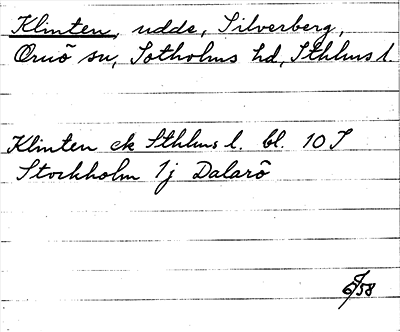 Klinten, udde, Silverberg,
Ornö sn, Sotholms hd, Sthlms l.
Klinten ek Sthlms l. bl. 10 S
Stockholm 1j Dalarö
58